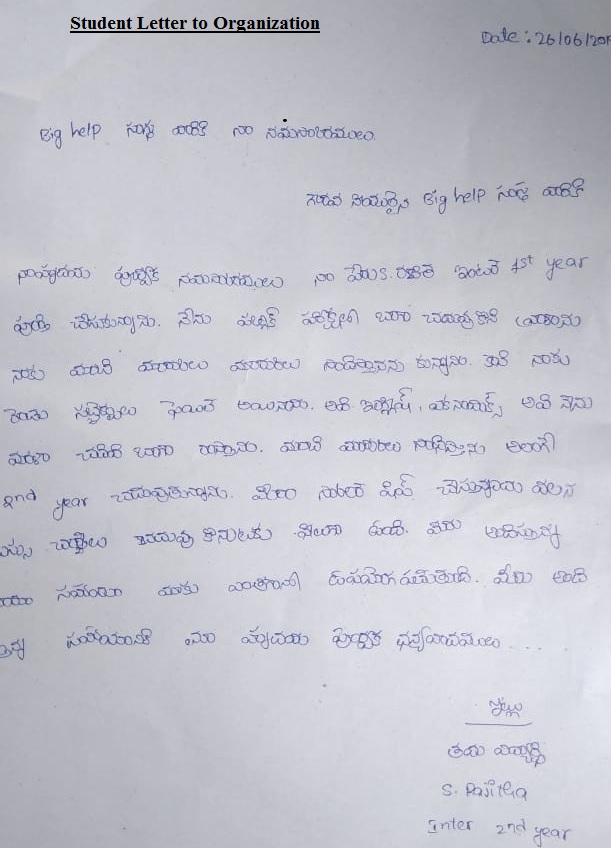 Student Letter to Organization
Date : 26/06/201
Big help సంస్థ వారికి నా నమస్కారములు.
గౌరవనీయులైన Big help సంస్థ వారికి
హృదయ పూర్వక నమస్కారములు నా పేరు S. రజిత ఇంటర్ 1st year
పూర్తి చేసుకున్నాను. నేను పబ్లిక్ పరీక్షలకి బాగా చదువుకొని వ్రాశాను
నాకు మంచి మార్కులు సాధిస్తానను కున్నాను. కాని నాకు
రెండు సబ్జెక్టులు ఫెయిల్ అయినాయి. అవి ఇంగ్లీష్, ఎకనామిక్స్ అవి నేను
మళ్ళీ చదివి బాగా రాస్తాను. మంచి మార్కులు సాధిస్తాను అలాగే
2nd year చదువుతున్నాను. మీరు స్కాలర్ షిప్ చేస్తున్నాయి వలన
చదువు కొనుటకు వీలుగా ఉంది. మీరు అందిస్తున్న
సహాయం మాకు ఎంతగానో ఉపయోగపడుతుంది. మీరు అంది
స్తున్న సహాయానికి మా హృదయ పూర్వక ధన్యవాదములు....
ఇట్లు
తమ విద్యార్థి
S. Rajitha
Inter 2nd year